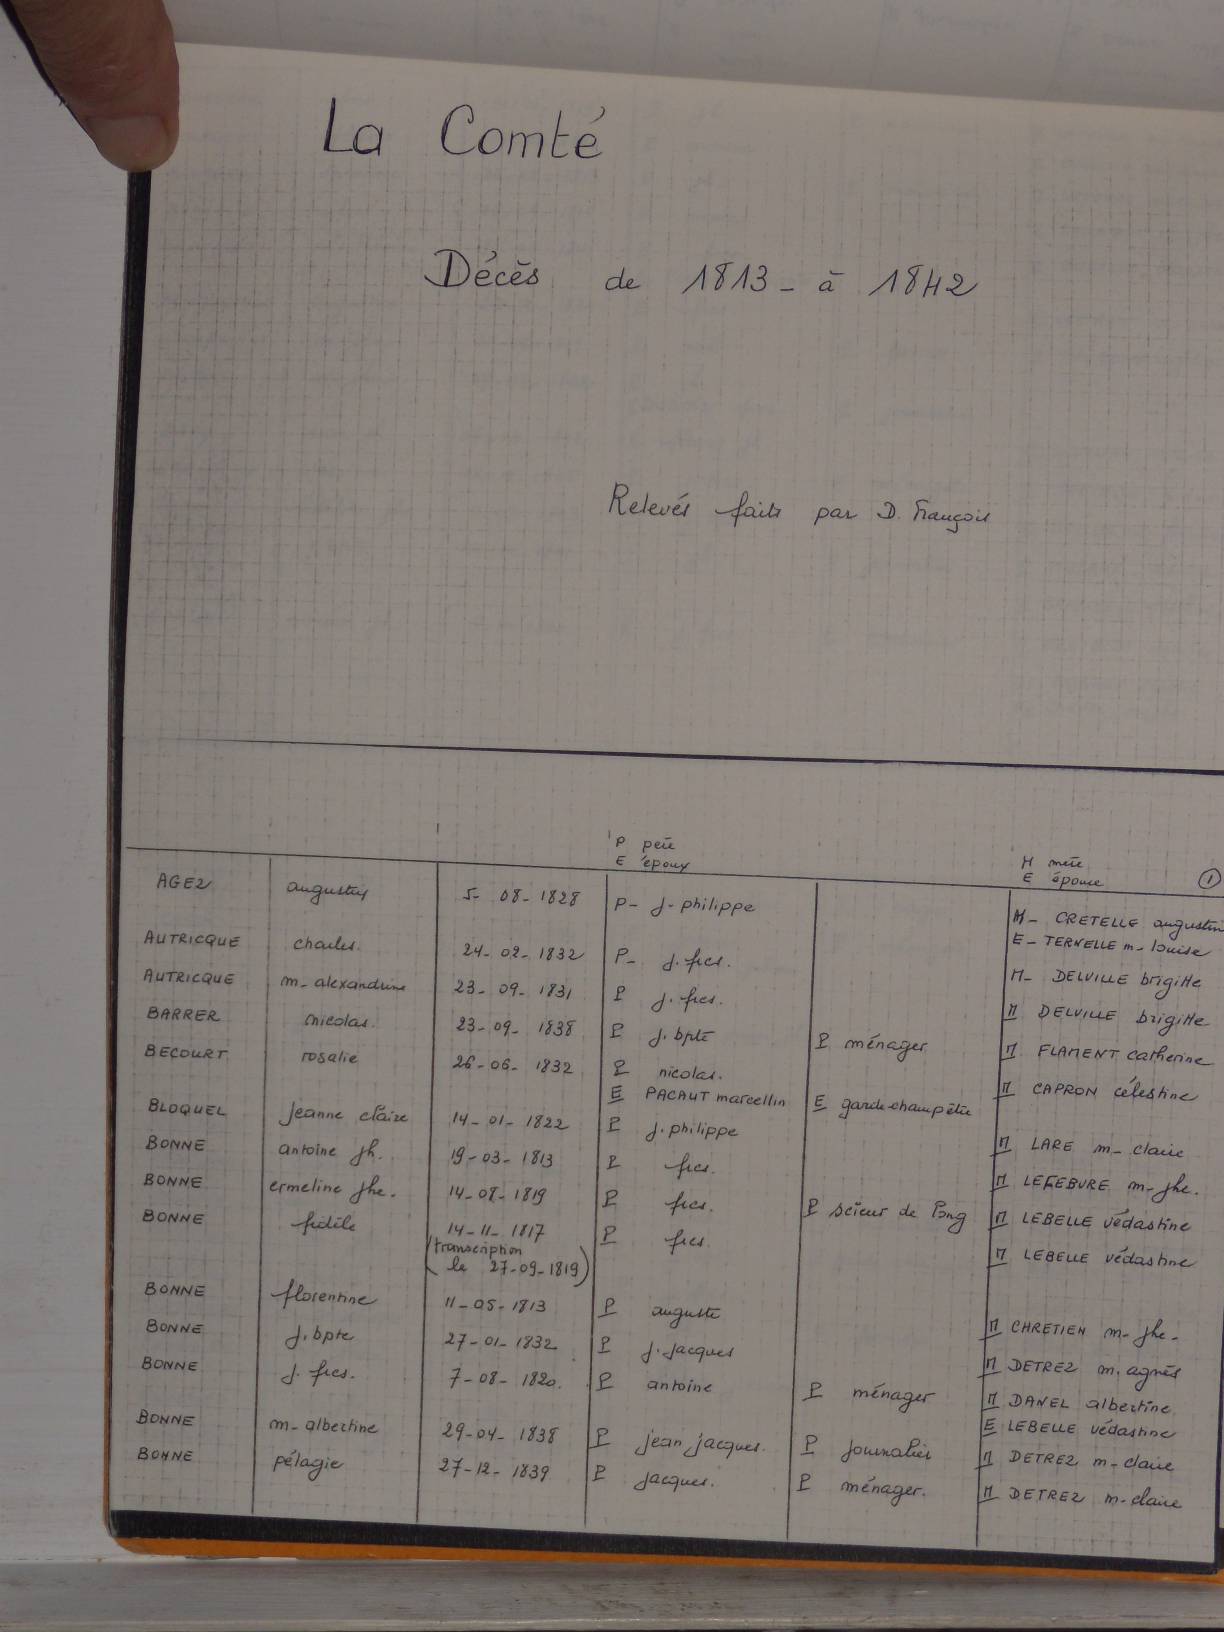 La Comté
Décès de 1813 - à 1842
Relevés faits par D. François
P père
E époux
M mère
E épouse
1
AGEZ augustin 5- 08-1828 P- J-philippe M- CRETELLE augustin
E- TERNELLE m-louise
AUTRICQUE charles. 24-02-1832 P- j.fcs. M- DELVILLE brigitte
AUTRICQUE m-alexandrine 23-09-1831 P j.fcs. M DELVILLE brigitte
BARRER nicolas. 23-09-1838 P j.bpte P ménager M FLAMENT catherine
BECOURT rosalie 26-06-1832 P nicolas. M CAPRON célestine
E PACAUT marcellin E garde-champêtre
BLOQUEL jeanne claire 14-01-1822 P j.philippe M LARE m-claire
BONNE antoine jh. 19-03-1813 P fcs. M LEFEBURE m-jhe.
BONNE ermeline jhe. 14-08-1819 P fcs. P scieur de long M LEBELLE védastine
BONNE fidèle 14-11-1817 P fcs. M LEBELLE védastine
(transcription
le 27-09-1819)
BONNE florentine 11-05-1813 P auguste M CHRETIEN m-jhe-
BONNE j.bpte 27-01-1832 P j.jacques M DETREZ m.agnès
BONNE j.fcs. 7-08-1820. P antoine P ménager M DANEL albertine
E LEBELLE védastine
BONNE m-albertine 29-04-1838 P jean jacques. P journalier M DETREZ m-claire
BONNE pélagie 27-12-1839 P jacques. P ménager. M DETREZ m-claire